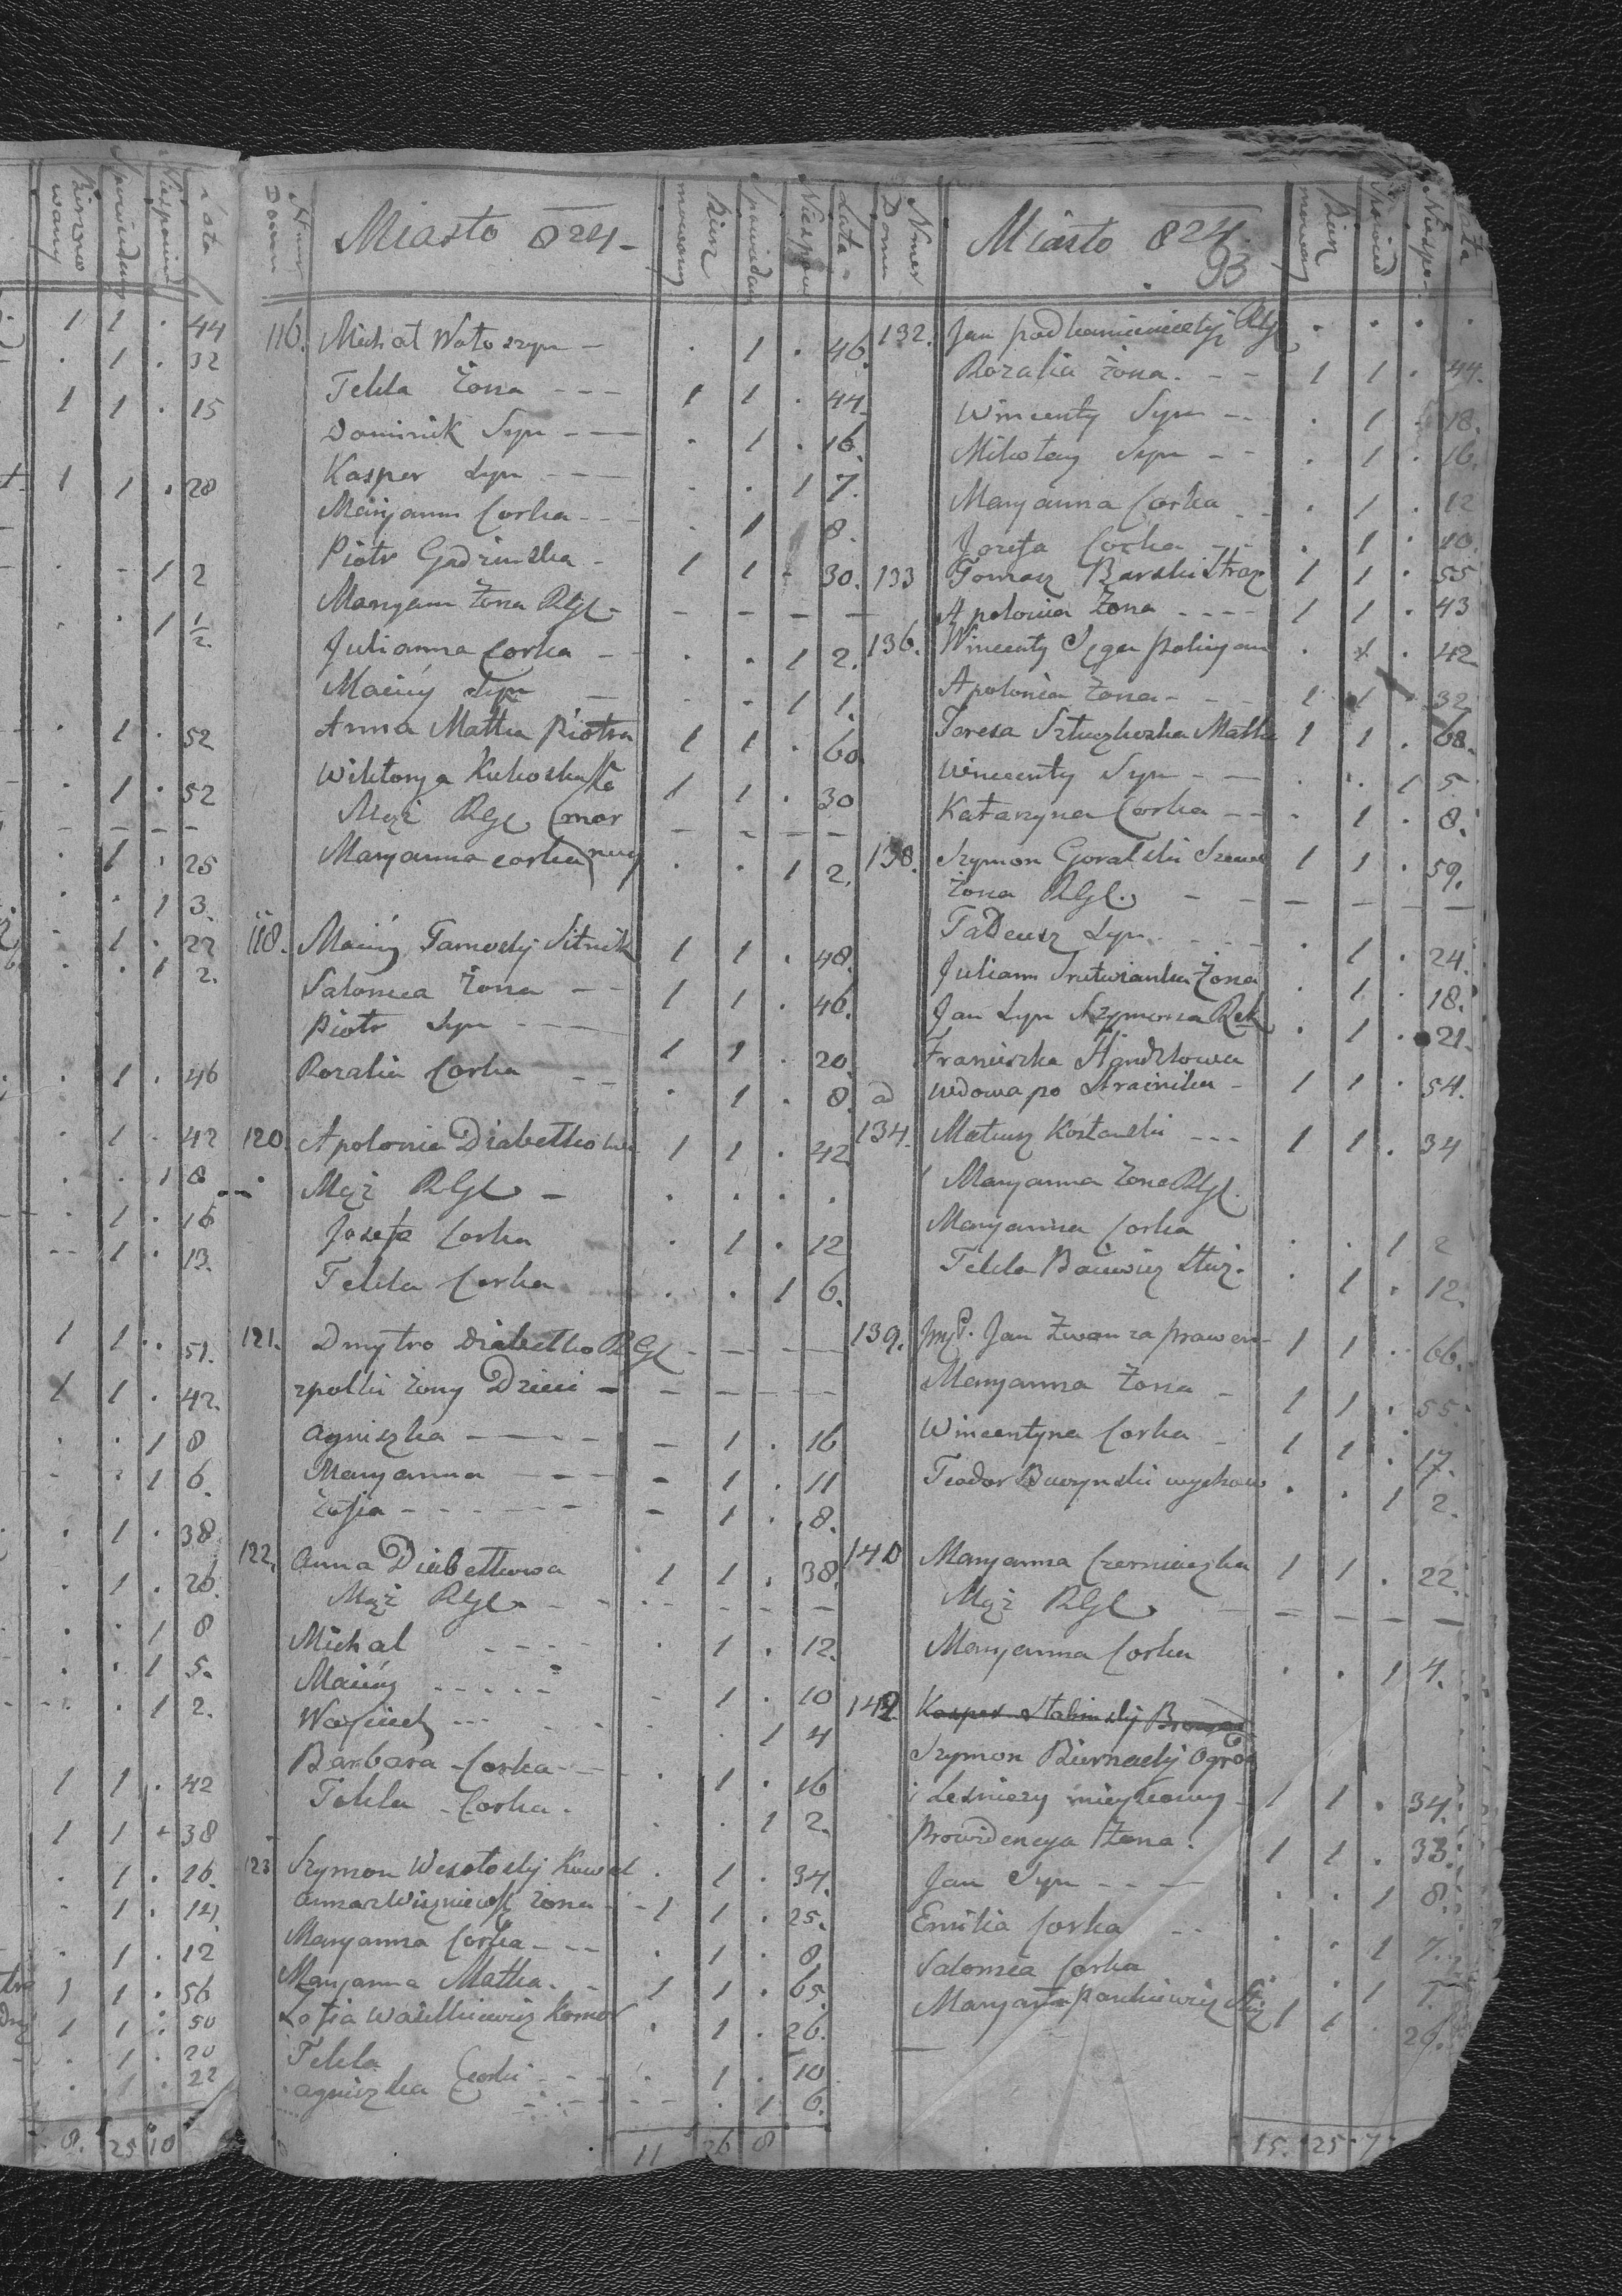 Numer Domu
Miasto 824
Bierz mowany
Spowiadany
Niespow
Lata
116. Michał Wołoszyn - . 1 . 46.
Tekla Żona - - - 1 1 . 44.
Dominik Syn - - . 1 . 16.
Kasper Syn - - . . 1 7.
Maryann Corka - - . 1 . 8.
Piotr Gadzinska - 1 1 . 30.
Maryann Żona RGl - - - - -
Julianna Corka - . . 1 2.
Maciey Syn - . . 1 1.
Anna Matka Piotra 1 1 . 60
Wiktorya Kukoska 1 1 . 30
Mąż RGl Komor - - - -
Maryanna corka nicy . . 1 2.
118. Maciey Tarnoskj Sitnik 1 1 . 48.
Salomea Żona - - 1 1 . 46.
Piotr Syn - - - 1 1 . 20.
Rozalia Corka - - . 1 . 8.
120. Apolonia Diabełkowa 1 1 . 42
Mąż RGl - . . . .
Jozefa Corka . 1 . 12
Tekla Corka . . 1 6.
121. Dmytro Diabełko RGl - - - -
zpołki żony Dzieci - - - - -
Agniszka - - - - - 1 . 16
Maryanna - - - - 1 . 11
Zofia - - - - - - 1 . 8.
122. Anna Diabełkowa 1 1 . 38.
Mąż RGl - - - - - -
Michał - - - - . 1 . 12.
Maciey - - - - - - 1 . 10
Wojciech - - - . . 1 4
Barbara Corka - - . 1 . 16
Tekla Corka - . . 1 2.
123 Szymon Wesołoskj Kowal . 1 . 34.
Anna z Wiszniewsk Żona - 1 1 . 25.
Maryanna Corka - - - . 1 . 8
Maryanna Matka - - 1 1 . 65.
Zofia Wasilkiewicz Komor . 1 . 26.
Tekla Corki - - - . 1 . 10
Agniszka - - - . . 1 6.
11 26 8
Numer Domu
Miasto 824.
93
Bierz mowany
Spowied
Niespo
Lata
132. Jan podkamienieckj RGl . . . .
Rozalia Żona. - - 1 1 . 44.
Wincenty Syn - - . 1 . 18.
Mikołay Syn - - . 1 . 16.
Maryanna Corka - - . 1 . 12
Jozefa Corka . 1 . 10.
133 Tomasz Barski Straz 1 1 . 55
Apolonia Żona - - - - 1 1 . 43
136. Wincenty . 1 . 42
Apolonia Żona - - - 1 1 . 32.
Teresa Matka 1 1 . 68.
Wincenty Syn - - . . 1 5
Katarzyna Corka - - . 1 . 8.
138. Szymon Goralski Szewc 1 1 . 59.
Żona RGl. - - - - - -
Tadeusz Syn - - - . 1 . 24.
Juliann Żona . 1 . 18.
Jan Syn Szymona Rek . 1 . 21.
Franciszka
ad Wdowa po Strażniku - 1 1 . 54.
134. Mateusz Kostanski - - - 1 1 . 34
Maryanna Żona RGl.
Maryanna Corka . . 1 2
Tekla Służ. . 1 . 12.
139. Jmp. Jan 1 1 . 66.
Maryanna Żona - 1 1 . 55.
Wincentyna Corka - 1 1 . 17.
Teodor Buczynski wychow . . 1 2.
140 Maryanna Czerniaszka 1 1 . 22.
Mąż RGl - - - - -
Maryanna Corka . . 1 4.
142 Kasper
Szymon Biernackj Ogro
i Leśniczy mieyscowy - 1 1 . 34.
Prowidencya Żona. 1 1 . 33.
Jan Syn - - - . . 1 8.
Emilia Corka - - . . 1 7.
Salomea Corka . . 1
Maryanna Pankiewicz Służ 1 1 . 26.
15. 25 7
44
1 1 . 44
. 1 . 32
1 1 . 15
1 1 . 28
- - 1 2
. . 1 1/2.
. 1 . 52
. 1 . 52
- - - -
. 1 . 25
. . 1 3.
. 1 . 22
. . 1 2.
. 1 . 46
. 1 . 42
. . 1 8
. 1 . 16
- 1 . 13.
1 1 . 51.
1 1 . 42.
. . 1 8
. . 1 6.
. 1 . 38
. 1 . 26.
. . 1 8
. . 1 5.
. . 1 2.
1 1 . 42
1 1 - 38
. 1 . 16.
. 1 . 14.
. 1 . 12
1 1 . 56
1 1 . 50
. 1 . 20
. 1 . 22
8. 25 10